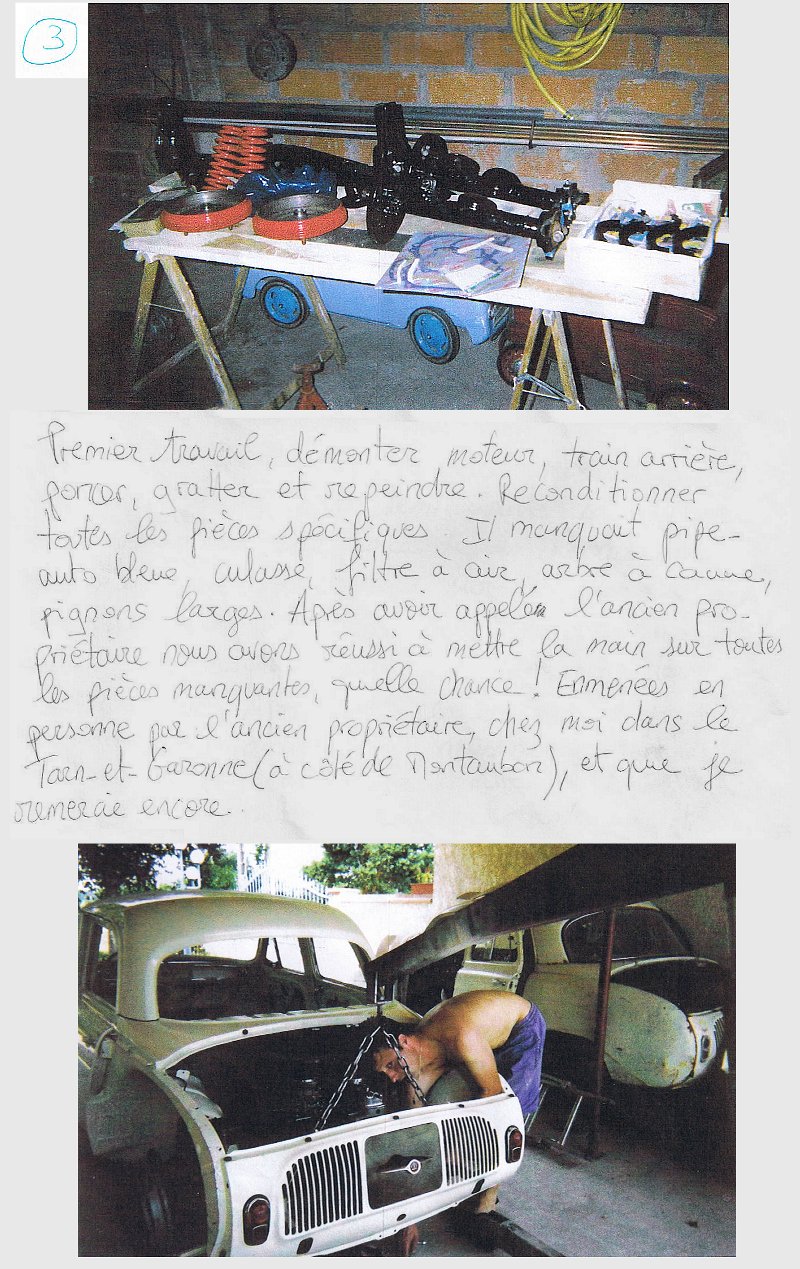 3
Premier travail, démonter moteur, train arrière,
poncer, gratter et repeindre. Reconditionner
toutes les pièces spécifiques. Il manquait pipe-
auto bleue, culasse, filtre à air, arbre à came,
pignons larges. Après avoir appeler l'ancien pro-
priétaire nous avons réussi à mettre la main sur toutes
les pièces manquantes, quelle chance ! Enmenées en
personne par l'ancien propriétaire, chez moi dans le
Tarn-et-Garonne (à côté de Montauban), et que je
remercie encore.